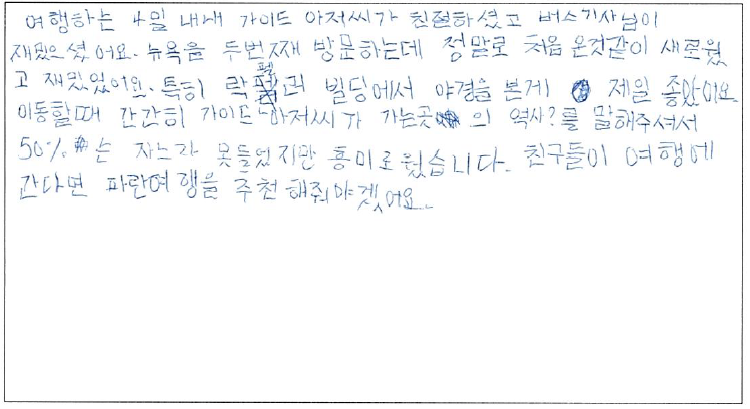 여행하는 4일 내내 가이드 아저씨가 친절하셨고 버스기사님이
재밌으셨어요. 뉴욕을 두번째 방문하는데 정말로 처음온것같이 새로웠
고 재밌었어요. 특히 락펠러 빌딩에서 야경을 본게 제일 좋았어요
이동할때 간간히 가이드 아저씨가 가는곳의 역사?를 말해주셔서
50%는 자느라 못들었지만 흥미로웠습니다. 친구들이 여행에
간다면 파란여행을 추천해줘야겠어요.